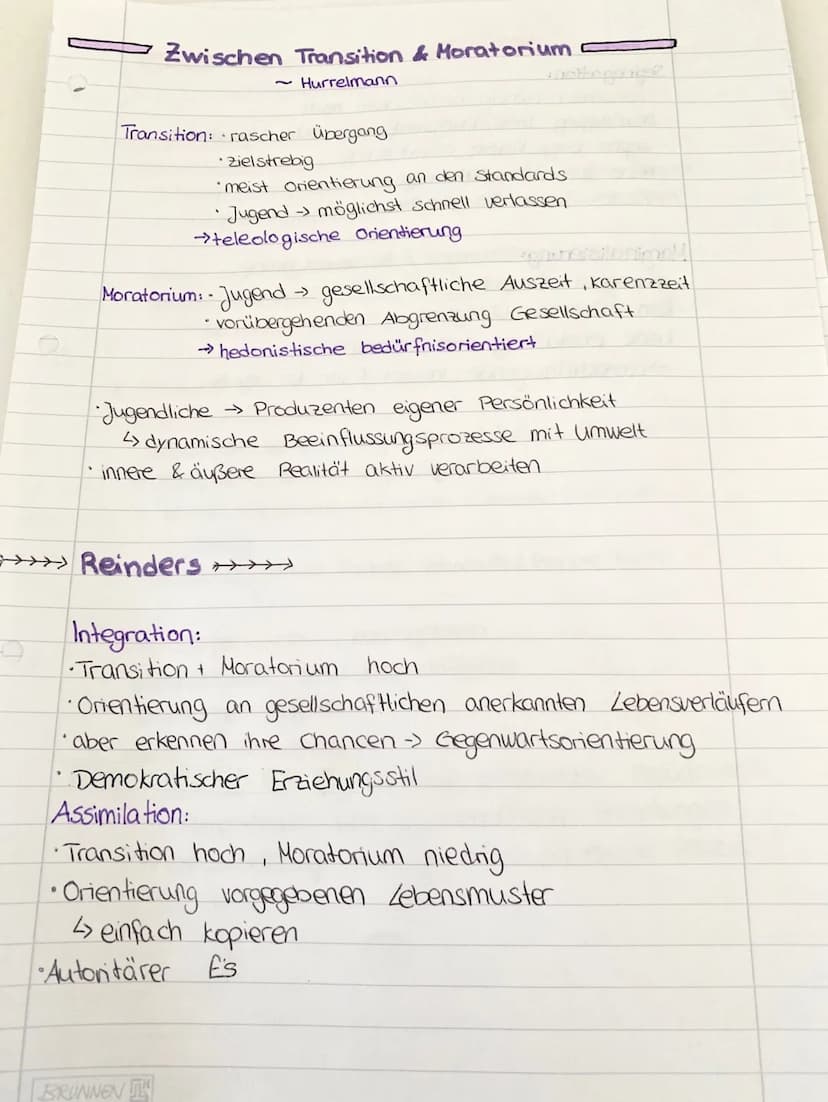 Zwischen Transition & Moratorium
~ Hurrelmann
Transition: · rascher Übergang
· zielstrebig
· meist Orientierung an den Standards
· Jugend → möglichst schnell verlassen
→ teleologische Orientierung
Moratorium: · Jugend → gesellschaftliche Auszeit, Karenzzeit
· vorübergehenden Abgrenzung Gesellschaft
→ hedonistische bedürfnisorientiert
· Jugendliche → Produzenten eigener Persönlichkeit
↳ dynamische Beeinflussungsprozesse mit Umwelt
· innere & äußere Realität aktiv verarbeiten
Reinders
Integration:
· Transition + Moratorium hoch
· Orientierung an gesellschaftlichen anerkannten Lebensverläufern
· aber erkennen ihre Chancen → Gegenwartsorientierung
· Demokratischer Erziehungsstil
Assimilation:
· Transition hoch, Moratorium niedrig
· Orientierung vorgegebenen Lebensmuster
↳ einfach kopieren
· Autoritärer E's
BRUNNEN